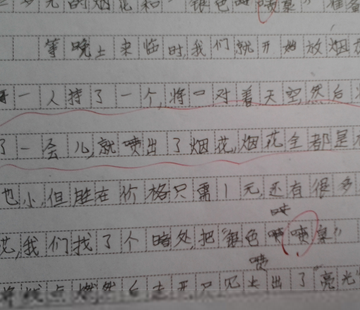 元的烟花和"银色喷泉"
等晚上来临时,我们就开始放烟花
一人持了一个,将口对着天空,然后
了一会儿,就喷出了烟花,烟花全都是
也小,但胜在价格只需1元,还有很多
喷
花,我们找了个暗处,把"银色喷泉"
喷
将线点燃然后走开只见出了"亮光"